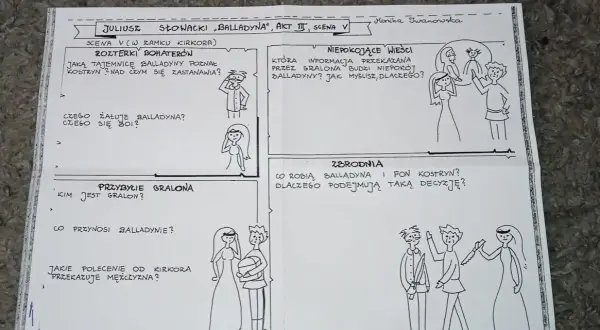 JULIUSZ SŁOWACKI „BALLADYNA", AKT III, SCENA V
Monika Iwanowska
SCENA V (W ZAMKU KIRKORA)
ROZTERKI BOHATERÓW
JAKĄ TAJEMNICĘ BALLADYNY POZNAŁ
KOSTRYN? NAD CZYM SIĘ ZASTANAWIA?
>
CZEGO ŻAŁUJE BALLADYNA?
CZEGO SIĘ BOI?
>
NIEPOKOJĄCE WIEŚCI
KTÓRA INFORMACJA PRZEKAZANA
PRZEZ GRALONA BUDZI NIEPOKÓJ
BALLADYNY? JAK MYŚLISZ, DLACZEGO?
>
PRZYBYCIE GRALONA
KIM JEST GRALON?
CO PRZYNOSI BALLADYNIE?
JAKIE POLECENIE OD KIRKORA
PRZEKAZUJE MĘŻCZYZNA?
ZBRODNIA
CO ROBIĄ BALLADYNA I FON KOSTRYN?
DLACZEGO PODEJMUJĄ TAKĄ DECYZJĘ?